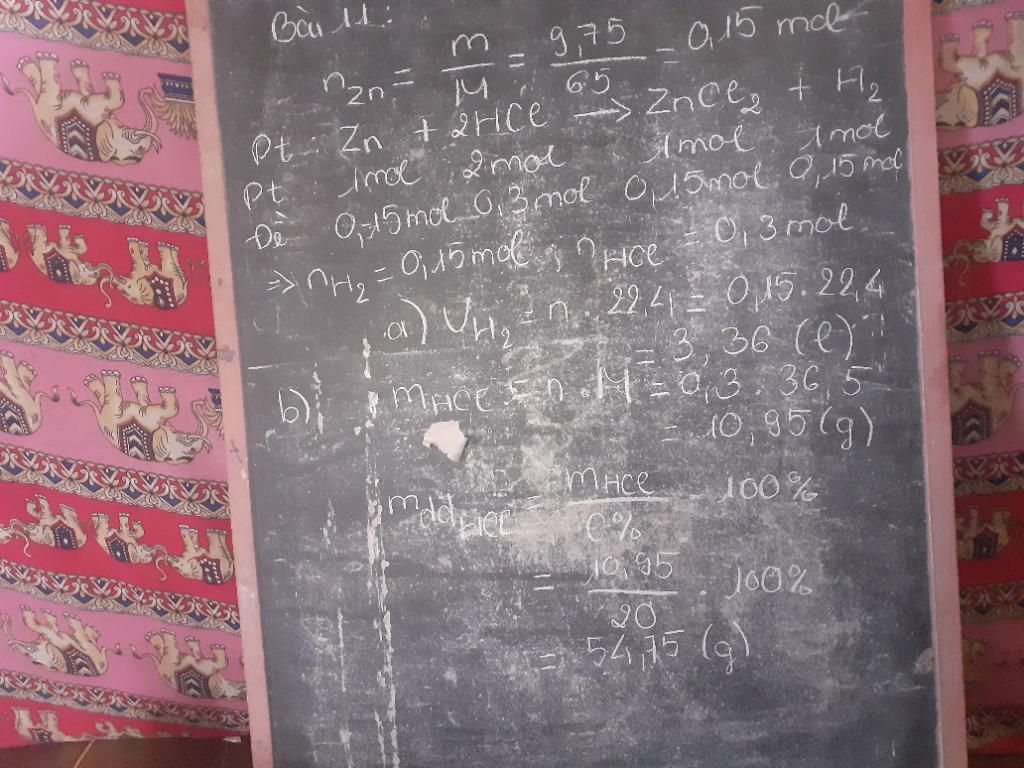 Bài 11:
nZn = m/M = 9,75/65 = 0,15 mol
Pt : Zn + 2HCl → ZnCl₂ + H₂
Pt : 1mol 2mol 1mol 1mol
Đề 0,15mol 0,3mol 0,15mol 0,15mol
=> nH₂ = 0,15mol ; nHCl = 0,3mol
a) VH₂ = n . 22,4 = 0,15 . 22,4
= 3,36 (l)
b) mHCl = n . M = 0,3 . 36,5
= 10,95 (g)
mddHCl = mHCl/C% . 100%
= 10,95/20 . 100%
= 54,75 (g)